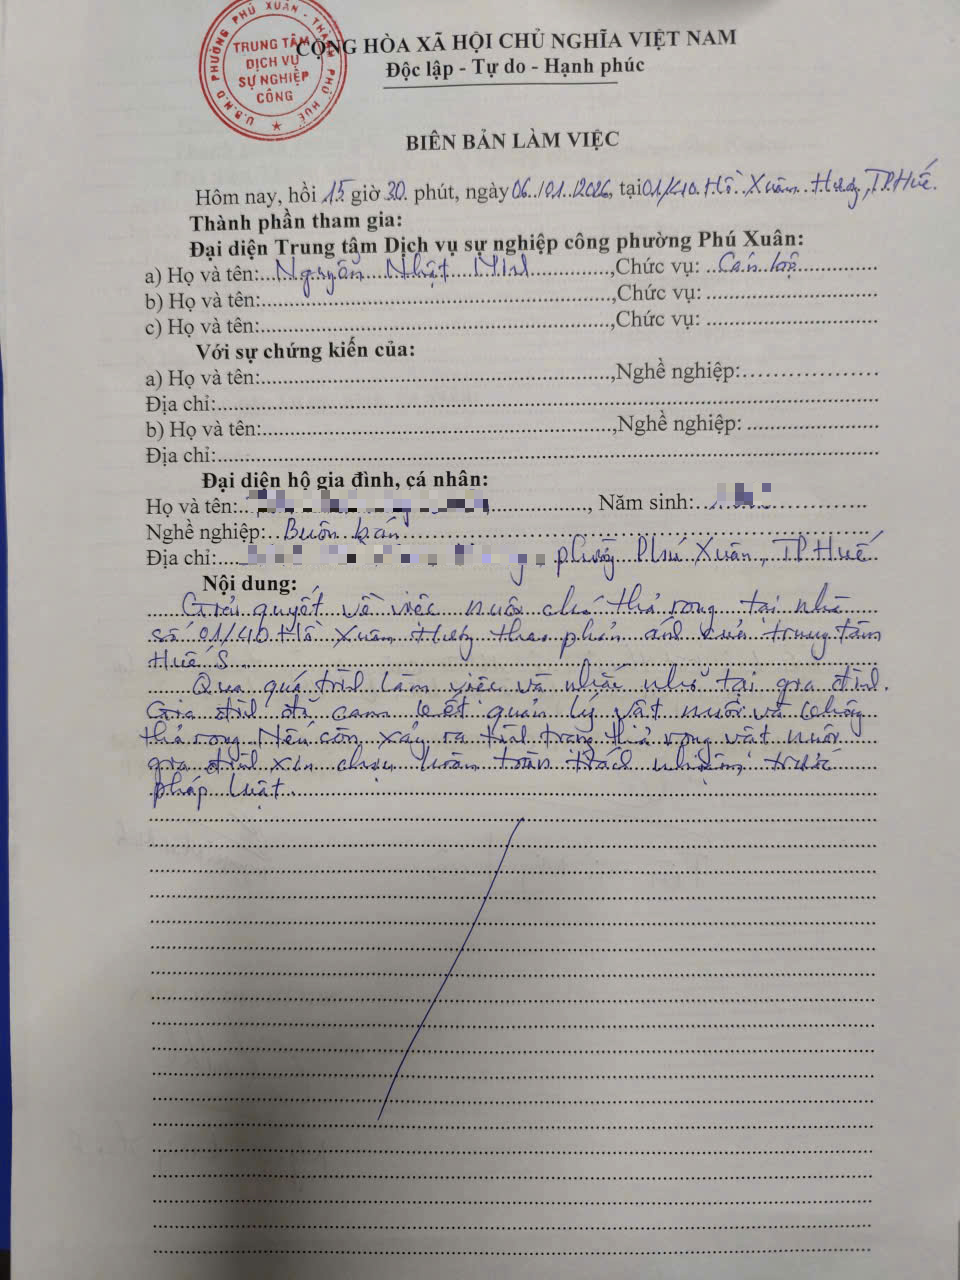 U.B.N.D PHƯỜNG PHÚ XUÂN - THÀNH PHỐ HUẾ
TRUNG TÂM
DỊCH VỤ
SỰ NGHIỆP
CÔNG
CỘNG HÒA XÃ HỘI CHỦ NGHĨA VIỆT NAM
Độc lập - Tự do - Hạnh phúc
BIÊN BẢN LÀM VIỆC
Hôm nay, hồi 15 giờ 30 phút, ngày 06/01/2026, tại 01/40 Hồ Xuân Hương, TP Huế.
Thành phần tham gia:
Đại diện Trung tâm Dịch vụ sự nghiệp công phường Phú Xuân:
a) Họ và tên: Nguyễn Nhật Minh, Chức vụ: Cán bộ
b) Họ và tên:, Chức vụ:
c) Họ và tên:, Chức vụ:
Với sự chứng kiến của:
a) Họ và tên:, Nghề nghiệp:
Địa chỉ:
b) Họ và tên:, Nghề nghiệp:
Địa chỉ:
Đại diện hộ gia đình, cá nhân:
Họ và tên:, Năm sinh:
Nghề nghiệp: Buôn bán
Địa chỉ: phường Phú Xuân, TP Huế
Nội dung:
Giải quyết về việc nuôi chó thả rong tại nhà
số 01/40 Hồ Xuân Hương theo phản ánh của trung tâm
Huế S.
Qua quá trình làm việc và nhắc nhở tại gia đình.
Gia đình đã cam kết quản lý vật nuôi và không
thả rong. Nếu còn xảy ra tình trạng thả rong vật nuôi
gia đình xin chịu hoàn toàn trách nhiệm trước
pháp luật.